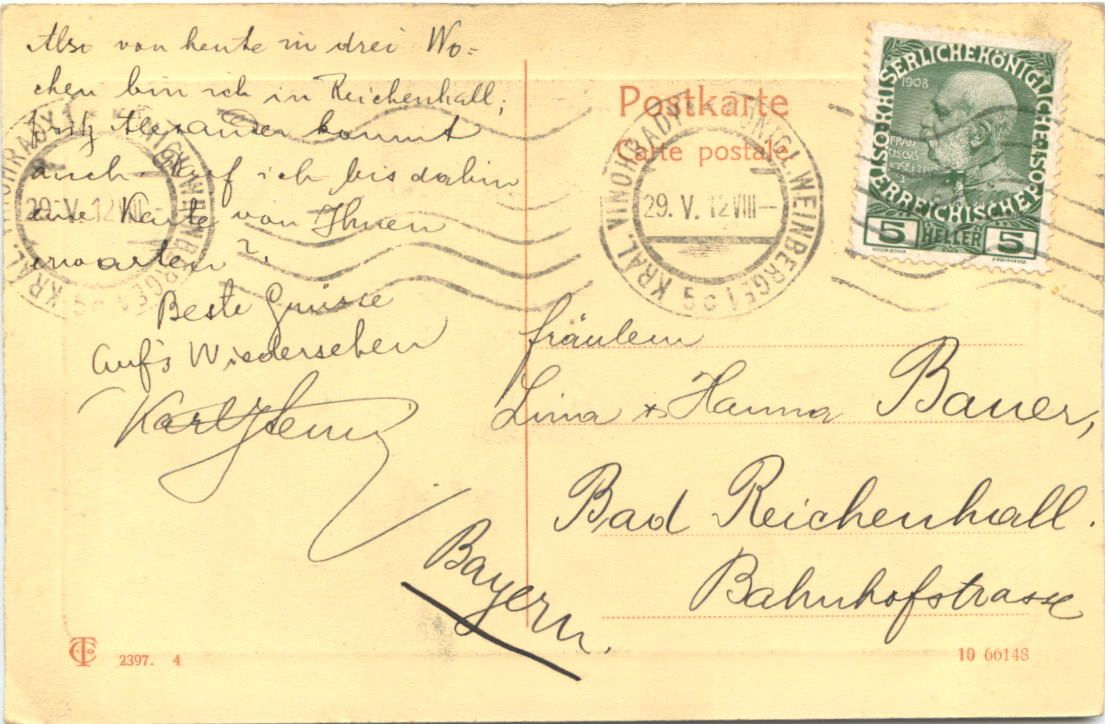 Also von heute in drei Wo-
chen bin ich in Reichenhall;
Alexander kommt
auch. Darf ich bis dahin
eine Karte von Ihnen
erwarten?
Beste Grüsse
Auf's Wiedersehen
Karl
Postkarte
Carte postale
KRÁL. VINOHRADY KÖNIGL. WEINBERGE 1
29. V. 12 VIII–
KRÁL. VINOHRADY KÖNIGL. WEINBERGE 1
29. V. 12 VIII–
KAISERLICHE KÖNIGLICHE ÖSTERREICHISCHE POST
1908
FRAN
CISCUS
JOSEPHUS
I
5 HELLER 5
Fräulein
Lina & Hanna Bauer,
Bad Reichenhall.
Bahnhofstrasse
Bayern.
2397. 4
10 66148